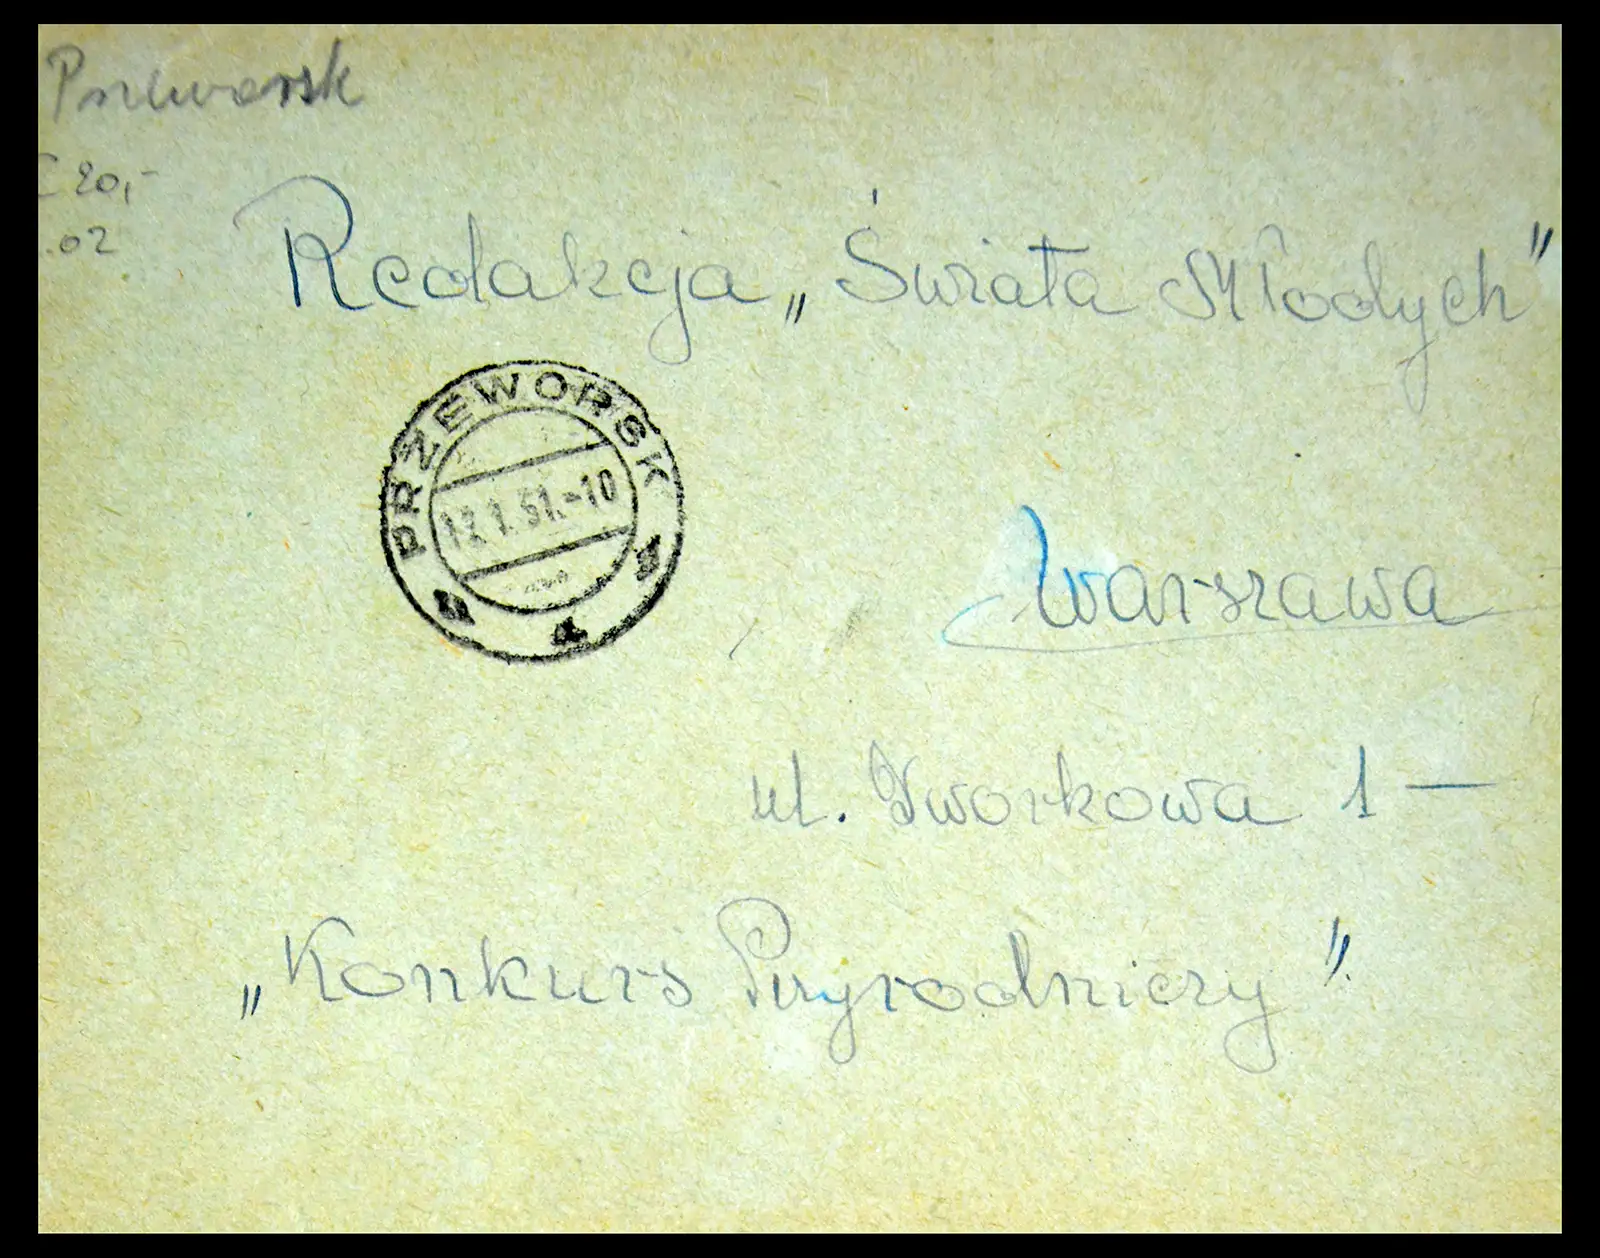 Przeworsk
20,-
.02
Redakcja „Świata Młodych"
PRZEWORSK
12.1.51.-10
a
Warszawa
ul. Dworkowa 1 —
„Konkurs Przyrodniczy".